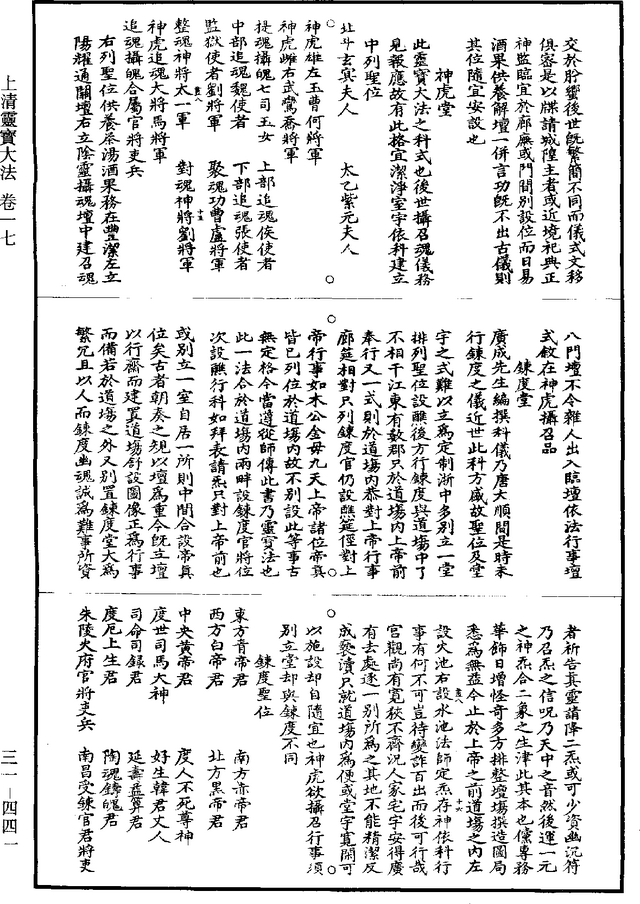 上清靈寶大法 卷一七
三一—四四一
交於肸蠁後世旣繁簡不同而儀式文移
俱容是以牒請城隍主者或近境祀典正
神監臨宜於廊廡或門間別設位而日易
酒果供養解壇一併言功旣不出古儀則
其位隨宜安設也
神虎堂
此靈寶大法之科式也後世攝召魂儀務
見報應故有此格宜潔淨室宇依科建立
中列聖位
北斗玄冥夫人 太乙紫元夫人
神虎雄左玉曹何將軍
神虎雌右武鸞喬將軍
提魂攝魄七司玉女 上部追魂侯使者
中部追魂魏使者 下部追魂張使者
監獄使者劉將軍 聚魂功曹盧將軍
整魂神將太一軍 對魂神將劉將軍
神虎追魂大將馬將軍
追魂攝魄合屬官將吏兵
右列聖位供養茶湯酒果務在豐潔左立
陽耀通關壇右立陰靈攝魂壇中建召魂
八門壇不令雜人出入臨壇依法行事壇
式敘在神虎攝召品
鍊度堂
廣成先生編撰科儀乃唐大順間是時未
行鍊度之儀近世此科方盛故聖位及堂
宇之式難以立爲定制浙中多別立一堂
排列聖位設醮後方行鍊度與道場中了
不相干江東有數郡只於道場內上帝前
奉行又一式則於道場內恭對上帝行事
廊筵相對只列鍊度官仍設醮筵徑對上
帝行事如木公金母九天上帝諸位帝眞
皆已列位於道場內故不別設此等事古
無定格今當遵從師傳此書乃靈寶法也
此一法合於道場內兩畔設鍊度官將位
次設醮行科如拜表請炁只對上帝前也
或別立一室自居一所則中間合設帝眞
位矣古者朝奏之規以壇爲重今旣立壇
以行齋而建置道場舒設圖像正爲行事
而備若於道場之外又別置鍊度堂大爲
繁冗且以人而鍊度幽魂誠爲難事所資
者祈告眞靈請降二炁或可少資幽沉符
乃召炁之信呪乃天中之音然後運一元
之神炁合二象之生津此其本也儻專務
華飾日增怪奇多方排整壇場撰造圖局
悉爲無益今止於上帝之前道場之內左
設火池右設水池法師定炁存神依科行
事有何不可豈待變詐百出而後可行哉
官觀尚有寬狹不齊況人家宅宇安得廣
有去處逐一別所爲之其地不能精潔反
成褻瀆只就道場內爲便或堂宇寬閑可
以施設却自隨宜也神虎欲攝召行事須
別立堂却與鍊度不同
鍊度聖位
東方青帝君 南方赤帝君
西方白帝君 北方黑帝君
中央黃帝君 度人不死尊神
度世司馬大神 好生韓君丈人
司命司錄君 延壽益算君
度厄上生君 陶魂鑄魄君
朱陵火府官將吏兵 南昌受鍊官君將吏